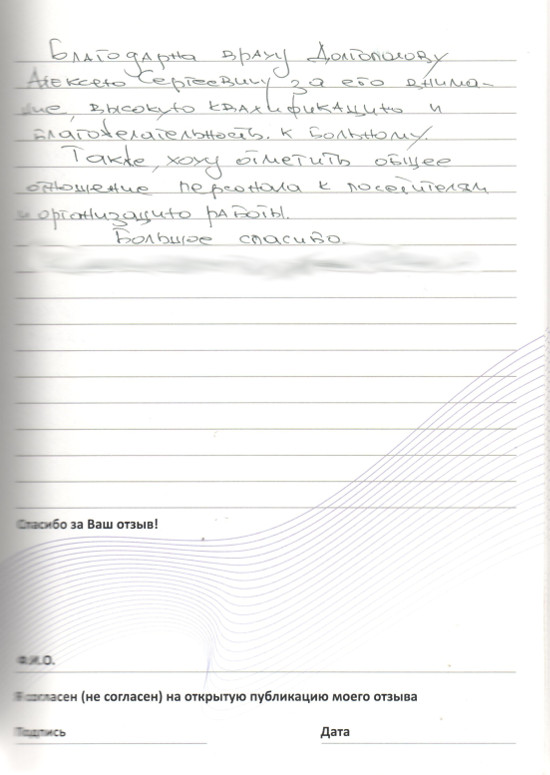 Благодарна врачу Долгополову
Алексею Сергеевичу за его внима-
ние, высокую квалификацию и
благожелательность к больному.
Также, хочу отметить общее
отношение персонала к посетителям
и организацию работы.
Большое спасибо.
Спасибо за Ваш отзыв!
Ф.И.О.
Я согласен (не согласен) на открытую публикацию моего отзыва
Подпись Дата